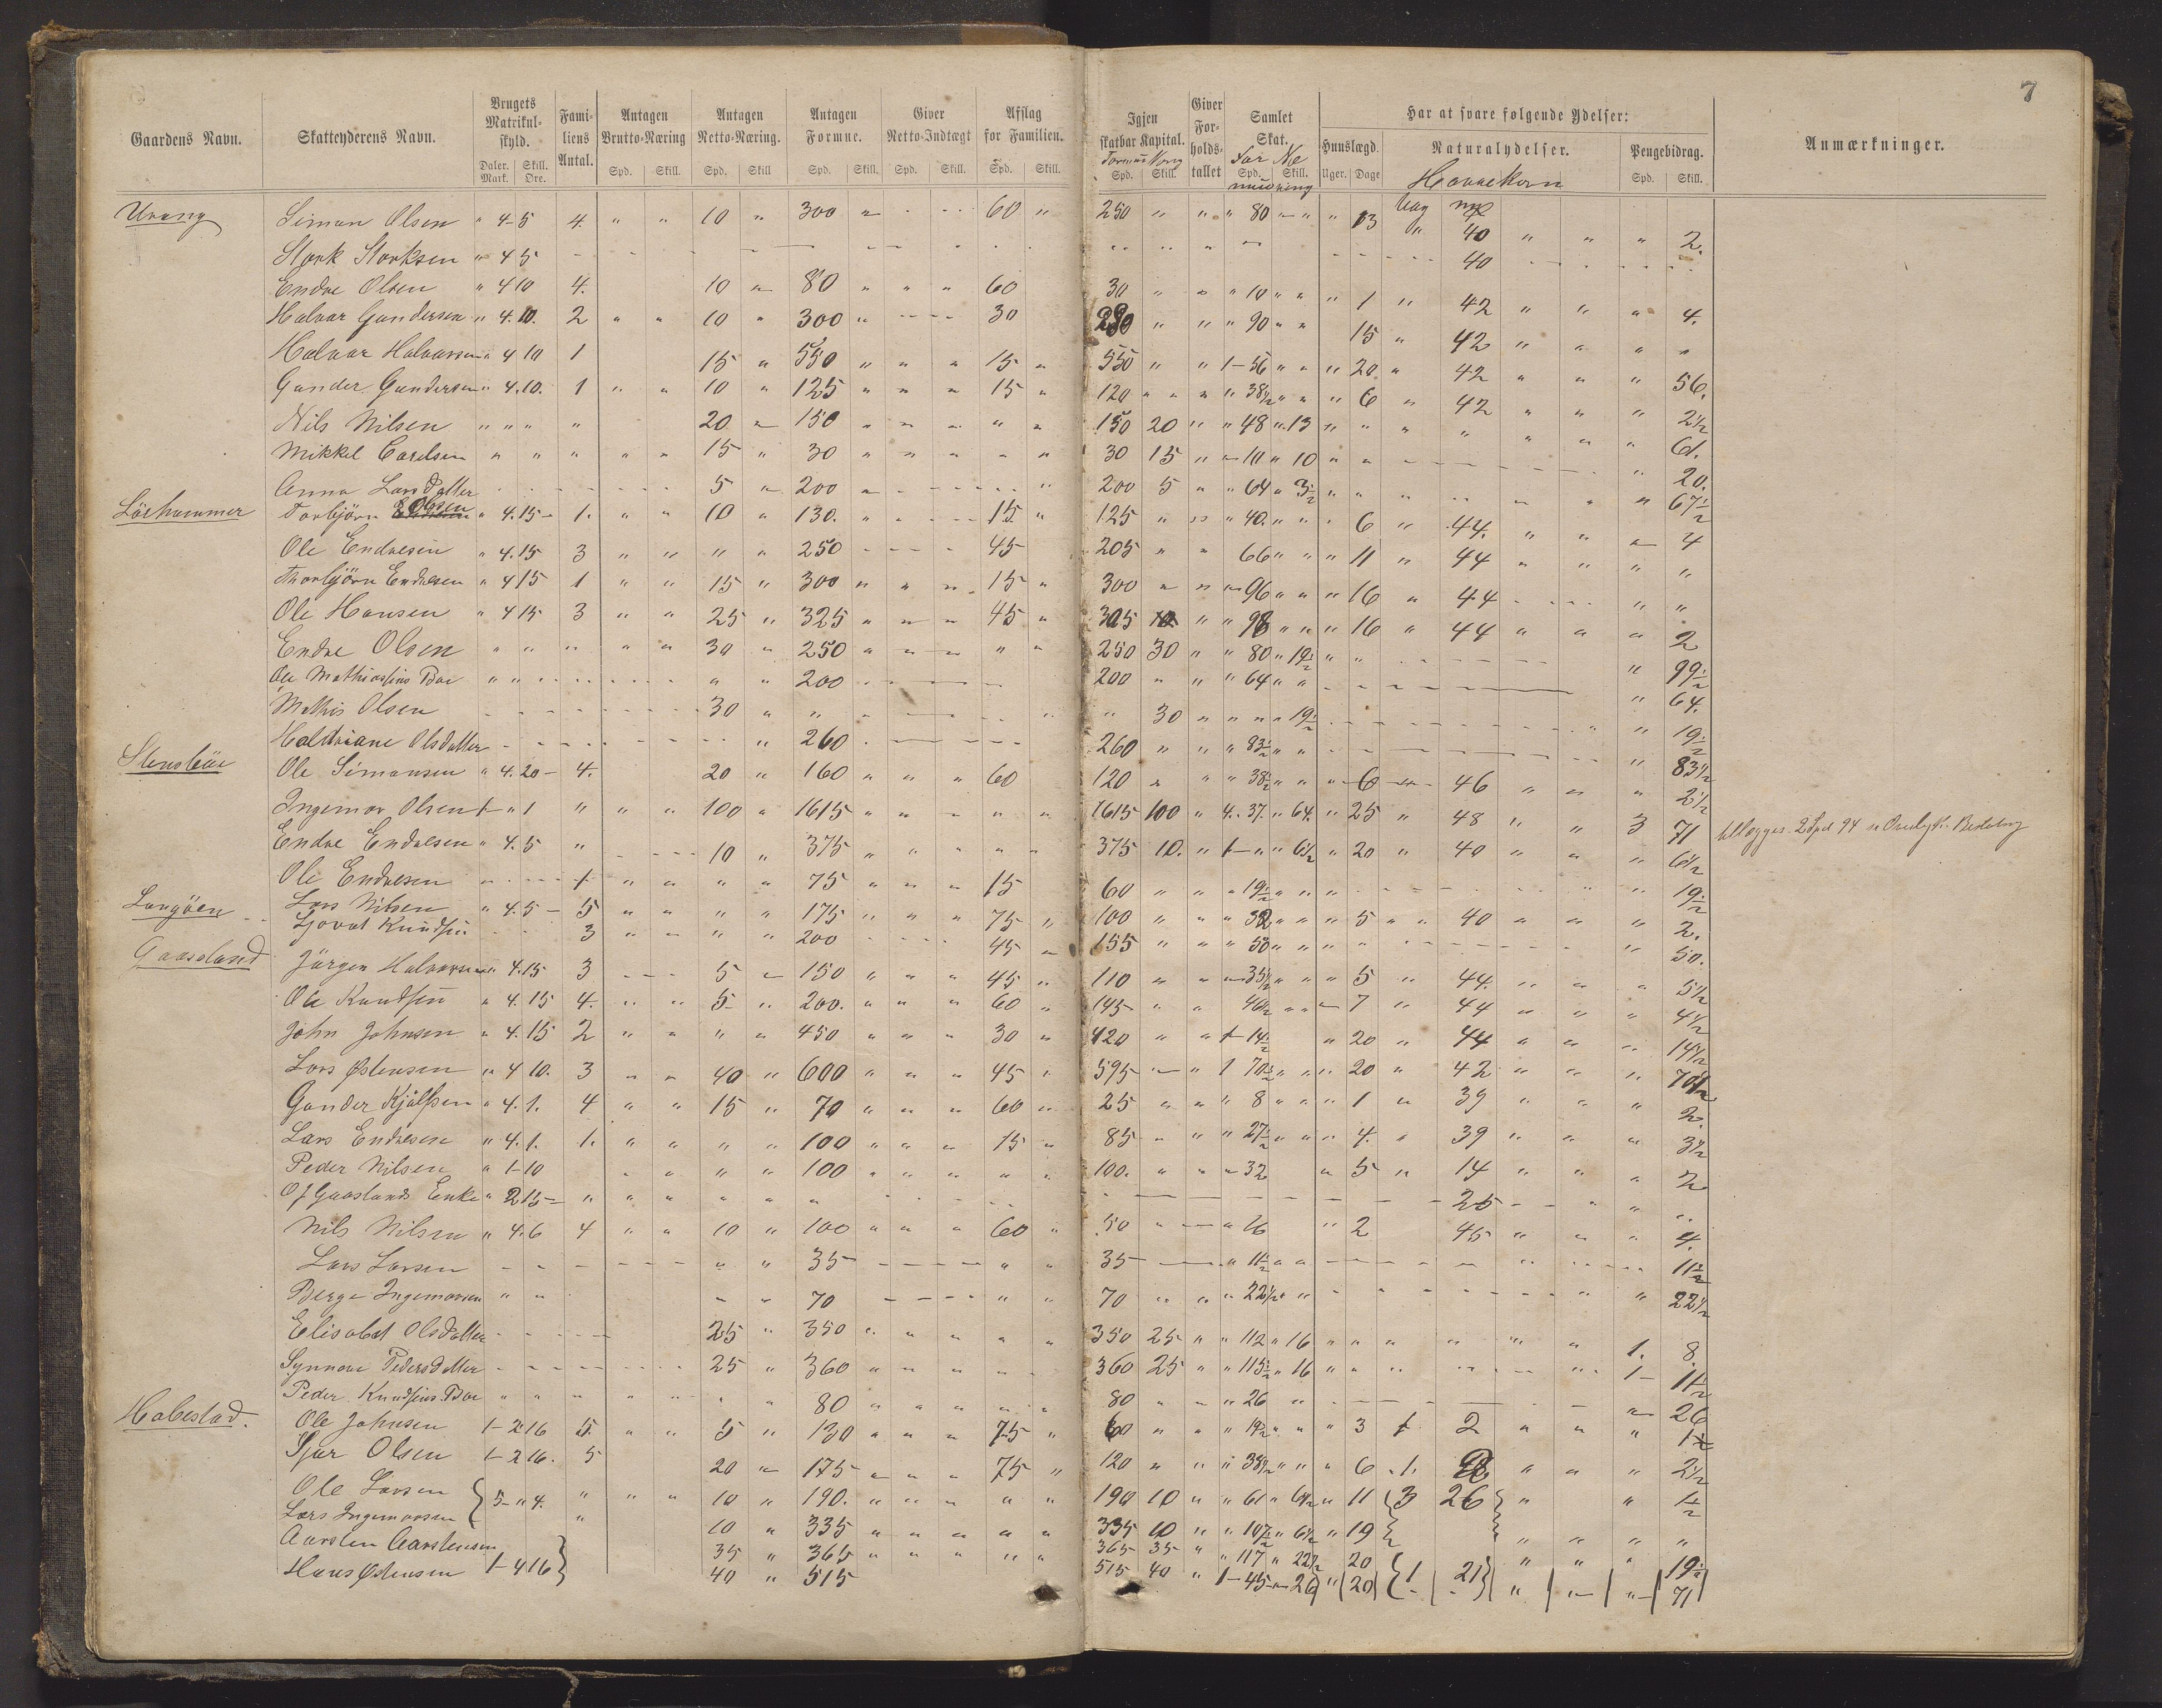 7
Gaardens Navn. Skatteyderens Navn. Brugets Matrikulskyld. Familiens Antal. Antagen Brutto-Næring Antagen Netto-Næring. Antagen Formue. Giver Netto-Indtægt Afslag for Familien. Igjen skatbar Kapital. Giver Forholdstallet Samlet Skat. Har at svare følgende Ydelser: Anmærkninger.
Hunslægd. Naturalydelser. Pengebidrag.
Daler. Mark. Skill. Øre. Spd. Skill. Spd. Skill Spd. Skill. Spd. Skill. Spd. Skill. Spd. Skill. Spd. Skill. Uger. Dage Havnekorn Spd. Skill.
Urang Simon Olsen " 4-5 4. " " 10 " 300 60 " 250 " " " 80 " " " 13 " 40 " " " 2.
Stork Storksen " 4 5 40
Endre Olsen " 4 10 4. 10 80 " " " 60 30 " " " 10 " " " 1 " 42 " " " 4.
Halvar Gundersen " 4. 10. 2 " " 10 " 300 " 30 280 " " " 90 " " 15 " 42 " " " "
Halvor Halvorsen " 4 10 1 15 " 550 " " " 15 " 550 " " 1-56 " " " 20 " 42 " " " 56.
Gunder Gundersen " 4.10. 1 " " 10 " 125 " " " 15 " 120 " " " " 38½ " " " 6 " 42 " " " 2½
Nils Nilsen " " " " 20 150 " " " " " 150 20 " " 48 " 13 " " " " " " " 61.
Mikkel Carelsen " " " " " " 15 " 30 " " " " " 30 15 " 10 " 10 " " " 20.
Anna Larsdatter 5 " 200 200 5 " " 64 " 3½ " " " 67½
Löchammer Torbjörn Olsen " 4.15 1. " " 10 " 130. " 15 " 125 " " " 40. " " " 6 " 44. " " 4
Ole Endresen " 4.15 3 " " " " 250 45 205 " " 66 " " " 11 " 44 " " " "
Thorbjörn Endresen " 4 15 1 " " 15 " 300 " " " 15 " 300 " " 96 " " " 16 " 44 " "
Ole Hansen " 4 15 3 " " 25 " 325 " " " 45 " 305 10 " " 98 " " " 16 " 44 " " " 2
Endre Olsen " " " " " 30 " 250 " " " " " 250 30 " " 80 " 19½ " " " 99½
Ole Mathiassens Boe " " " " 200 200 " " " 64 " " " 64.
Mathis Olsen 30 " " " " 30 " " " " 19½ " " 19½
Haldriane Olsdatter " 260 260 " " " 83½ " " " 83½
Stensböe Ole Simonsen " 4. 20 4. 20 " 160 " " " 60 120 " " " 38½ " " " 6 46 " " " 2½
Ingemar Olsen 1 " 1 " " " 100 " 1615 " " " " " 1615 100 " 4. 37. " 64. " 25 " 48 " " 3 71
Endre Endresen " 4. 5 " 10 " 375 " " " " " 375 10. " 1 " " 6½ " 20 " 40 " " " 6½
Ole Endresen " 1 " " " " 75 " " " 15 60 " " " 19½ " " " " " 19½
Langöen Lars Nilsen " 4. 5 5 " " " " 175 " " " 75 " 100 " " " 32 " " " 5 " " 40 " " " 2.
Sjovat Knudsen 3 " " " " 200 45 " 155 " " " 50 " " " " " 50.
Gaaseland Jörgen Halvorsen " 4.15 3 5 150 " " " 45 " 110 " " 35½ " " " 5 " 44. " " " 5½
Ole Knudsen " 4. 15 4. " " 5 " 200. " " " 60 " 145 " " 46½ " " 7 " 44 " " " 4½
John Johnsen " 4. 15 2 " " " " 450 " " " 30 " 420 " " 1-14½ " 20 " 44 " " " 14½
Lars Østensen " 4 10. 3 " " 40 " 600 " " " 45 " 595 " 1 70½ " " " 20 " 42 " " " 70½
Gunder Kjölsen " 4. 1. 4 " " 15 " 70 " " " 60 " 25 " " " 8 " " " 1 " 39 " " " 2.
Lars Endresen " 4. 1. 1. " " " " 100 " " " 15 " 85 " " " 27½ " " " 4. " 39 " " " 3½
Peder Nilsen " 1-10 " " " " 100 " " " " " 100. " " " 32 " 5 " 14 " " " 2
O J Gaaslands Enke " 2 15 " " " " " " 25 " " "
Nils Nilsen " 4. 6 4 " " 10 " 100 " " " 60 " 50 " " 16 " 2 45 " " " 4.
Lars Larsen " " 35 " " 35 " 11½ " " 11½
Berge Ingemorsen " " 70 " " 70 " " " 22½ " " " " 22½
Elisabet Olsdatter 25 " 350 " " " " " 350 25 " " 112 " 16 " " " " " " 1. 8.
Synnove Pedersdatter 25 " 360 " " " " 360 25 " " 115½ " 16 " " " 1- 11½
Peder Knudsens Boe " " " " " " 80 " " " " " 80 " " " 26 " 26
Habestad. Ole Johnsen 1-2 16 5. " " 5 " 130 " " " 75 " 60 " " " 19½ " " " 3 1 2 " " " 1½
Sjur Olsen 1-2 16. 5 20 " 175 " " " 75 " 120 " " " 38½ " " " 6 . 1. " " " 2½
Ole Larsen 5- " 4. " " " 10 " 190. " " " " " 190 10 " " 61 " 6½ " 11 3 26 " " 1½
Lars Ingemorsen " 10 " 335 " " " " " 335 10 " " 107½ " 6½ " 19 " " " "
Aarsten Aarstensen 35 " 365 " " " " " 365 35 " " 117 " 22½ 20 " " " 19½
Hans Østensen 1-4 16 40 " 515 515 40 " 1-45 26 " 20 1 21 " " " 71